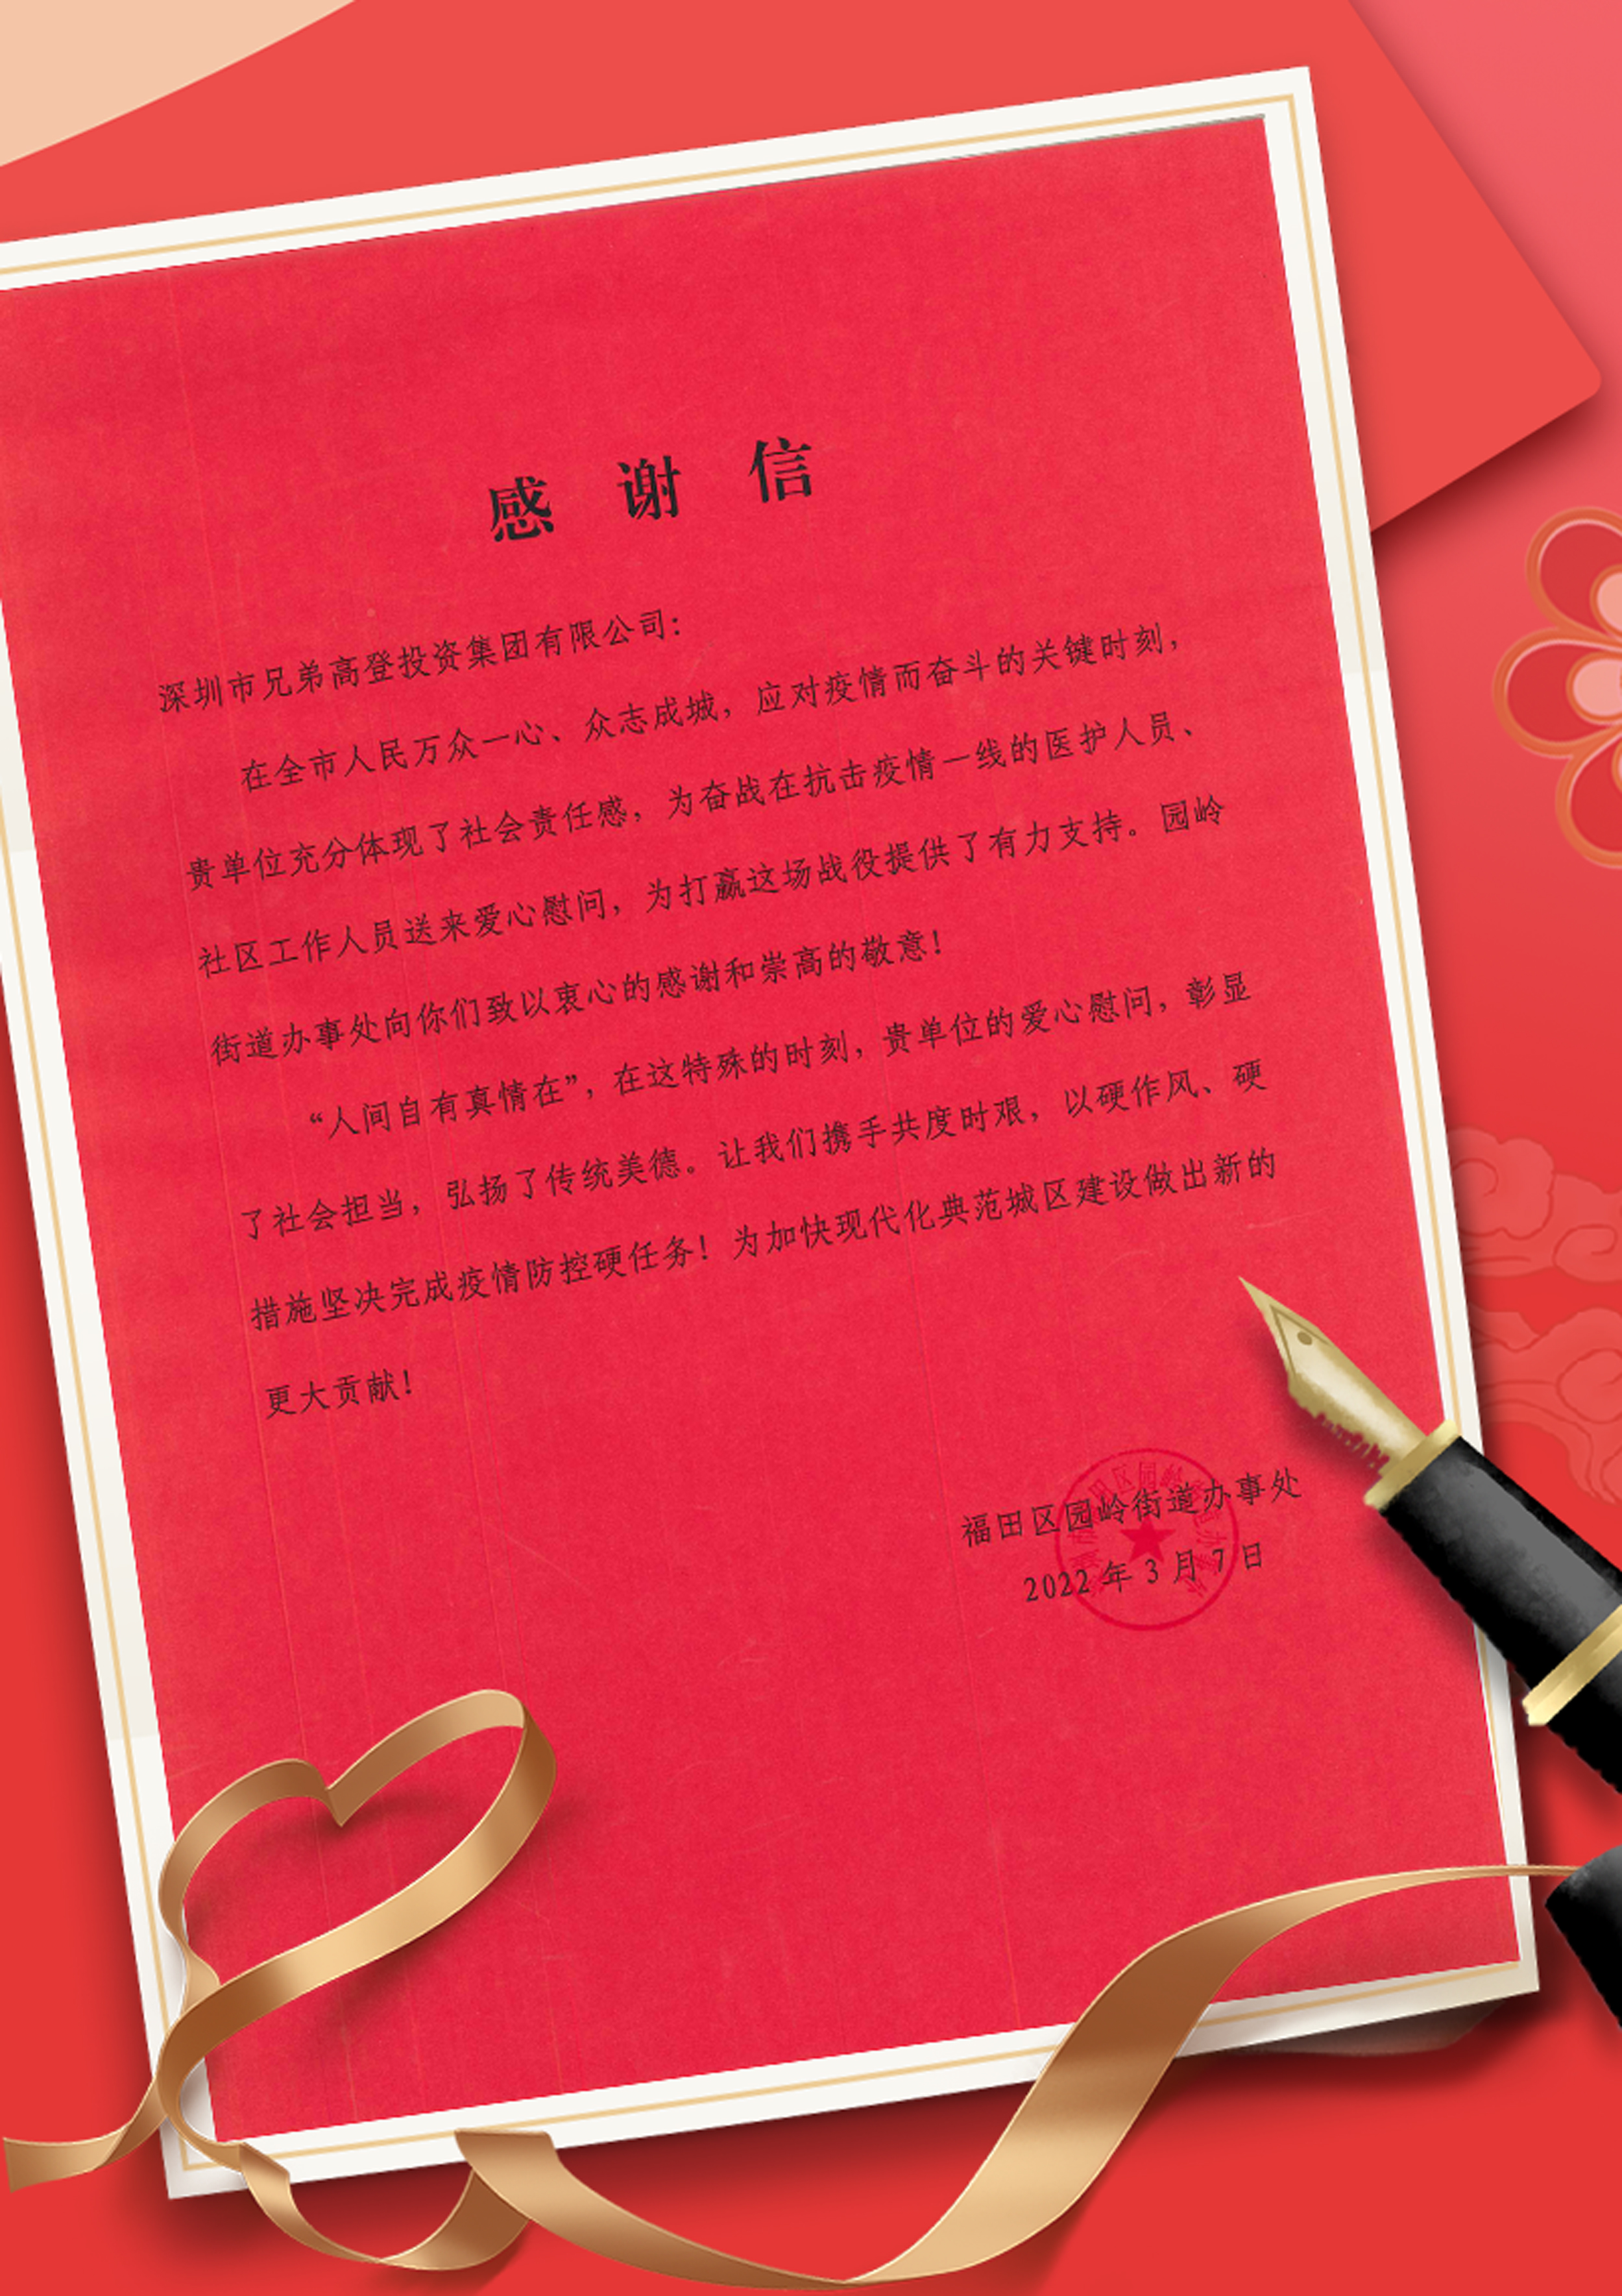 感谢信
深圳市兄弟高登投资集团有限公司：
在全市人民万众一心、众志成城，应对疫情而奋斗的关键时刻，
贵单位充分体现了社会责任感，为奋战在抗击疫情一线的医护人员、
社区工作人员送来爱心慰问，为打赢这场战役提供了有力支持。园岭
街道办事处向你们致以衷心的感谢和崇高的敬意！
“人间自有真情在”，在这特殊的时刻，贵单位的爱心慰问，彰显
了社会担当，弘扬了传统美德。让我们携手共度时艰，以硬作风、硬
措施坚决完成疫情防控硬任务！为加快现代化典范城区建设做出新的
更大贡献！
福田区园岭街道办事处
2022年3月7日